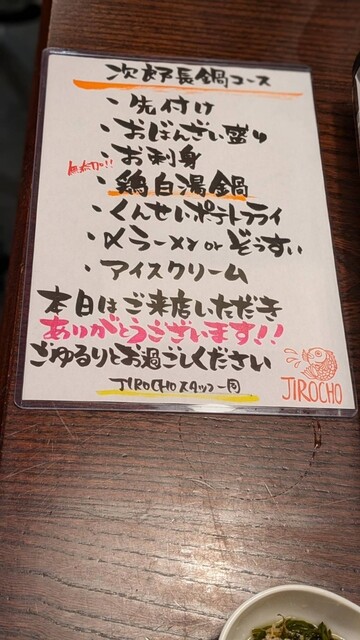 次郎長鍋コース
・先付け
・おばんざい盛り
・お刺身
無添加!!
・鶏白湯鍋
・くんせいポテトフライ
・〆ラーメン or ぞうすい
・アイスクリーム
本日はご来店いただき
ありがとうございます!!
ごゆるりとお過ごしください
JIROCHO スタッフ一同
JIROCHO